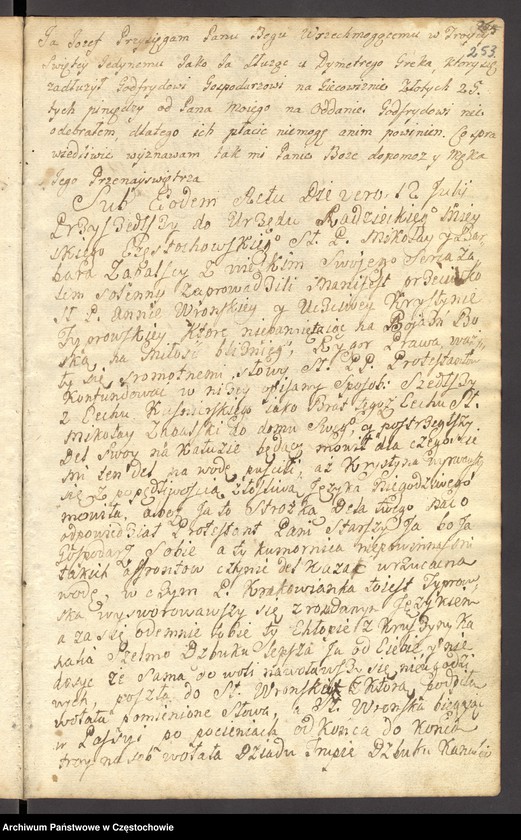 265
253
Ja Jozef Przysięgam Panu Bogu Wszechmogącemu w Troycy
Swiętey Jedynemu Jako Ja Służąc u Dymetrego Greka
zadłużył Godfrydowi Gospodarzowi na Złotych 25.
tych pinędzy od Pana Moiego na Oddanie Godfrydowi nie
odebrałem, dlatego ich płacic niemogę anim powinien, Co spra
wiedliwie wyznawam tak mi Panie Boze dopomoz y Męka
Jego Przenayswiętrza
Sub Eodem Actu Die vero 12 Julij
Przyszedłszy do Urzędu Radzieckiego Miey
skiego Częstochowskiego St. P. Mikołay y Bar
bara Zabalscy z wielkim swojego serca ża
lem solenny zaprowadzili Manifest przeciwko
St P. Annie Wronskiey y Uczciwey Krystynie
Typrowskiey Które niepamiętaiąc na Bojaźń Bo
ską, na miłość bliźniego, Rygor Prawa, waży
ły się sromotnemi słowy St. PP. Protestantow
Konfundować w niżey opisany Sposob. Szedłszy
z Cechu Kusnierskiego iako Brat tegoż Cechu St.
Mikołay do domu Swego y postrzegłszy
Del Swoy na Kałuzie będący mowił dla czego
mi ten Del na wodę puscili, aż Krystyna
się z popędliwością złosliwą Języka Niegodziwego
mowiła, a bo Ja to Strożka Dela twego na to
odpowiedział Protestant Pani Starszy Ja
Gospodarz Sobie a ty kumornica niepowinnas mi
takich affrontow czynic del Kazac wrzucac na
wodę, w czym P. Krakowianka to iest Typrow
ska wysworowawszy się z rozdanym Językiem
a za się odemnie tobie ty Chłopie z
halia Szelmo Dzbuku lepsza Ja od Ciebie y nie
dosyc że sama do woli nawołałwszy się
wych, poszła do St. Wronskiey Która
wołała pomienione Słowa, a St. Wronska biegając
w Pasyi po pocieniach od Konca do Konca
wołała Dziadu Trupie Dzbuku
Archiwum Państwowe w Częstochowie